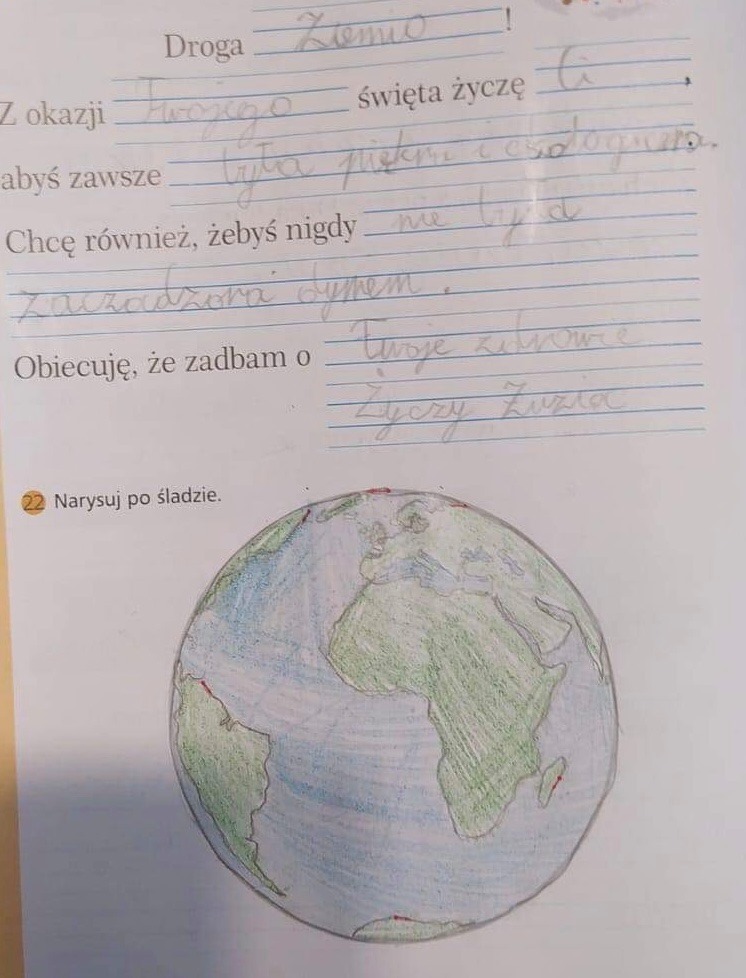 Droga Ziemio !
Z okazji Twojego święta życzę Ci ,
abyś zawsze była piękna i
Chcę również, żebyś nigdy nie była
zaczadzona dymem .
Obiecuję, że zadbam o Twoje zdrowie
Życzy Zuzia
22 Narysuj po śladzie.